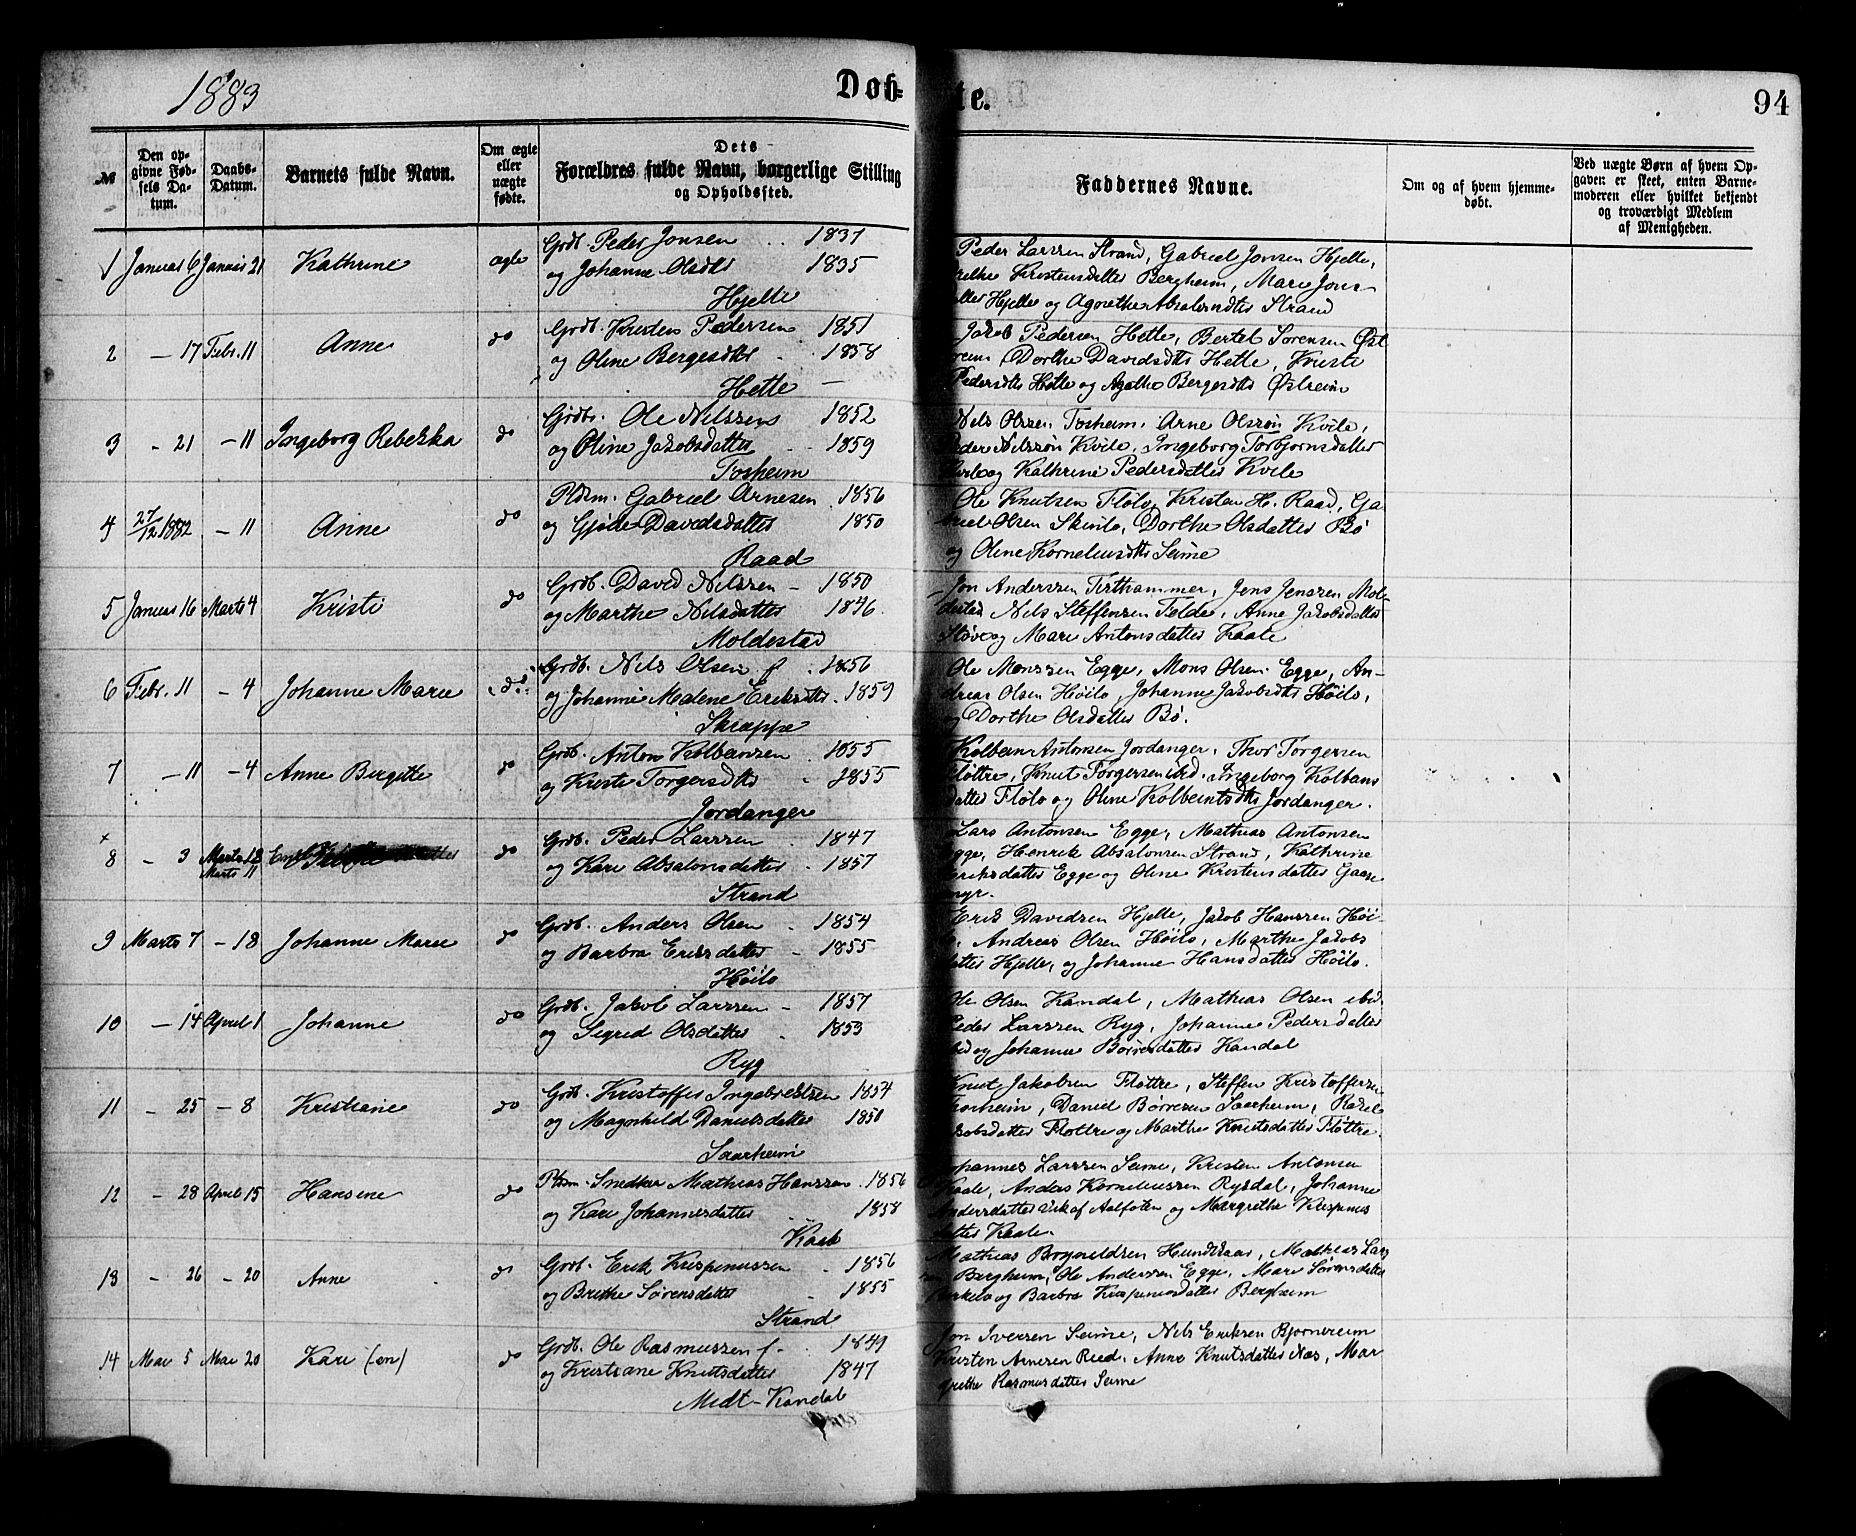 1883
Døb=
te.
94
№
Den op-
givne Fød-
sels Da-
tum.
Daabs-
Datum.
Barnets fulde Navn.
Om ægte
eller
uægte
fødte.
Dets
Forældres fulde Navn, borgerlige Stilling
og Opholdssted.
Faddernes Navne.
Om og af hvem hjemme-
døbt.
Ved uægte Børn af hvem Op-
gaven er skeet, enten Barne-
moderen eller hvilket bekjendt
og troværdigt Medlem
af Menigheden.
1 Januar 6 Januar 21 Kathrine ægte
Grdb. Peder Jonsen 1837
og Johanne Olsdtr 1835
Hjelle
Peder Larssen Strand, Gabriel Jonsen Hjelle,
Kristensdatter Bergheim, Mari Jons-
datter Hjelle og Agnethe Absalonsdtr Strand
2 – 17 Febr. 11 Anne do
Grdb. Kristen Pedersen 1851
og Oline Bergesdtr 1858
Hetle
Jakob Pedersen Hetle, Bertel Sørensen Øst
reim Dorthe Davidsdtr Hetle, Kristi
Pedersdtr Hetle og Agathe Bergesdtr Østreim
3 – 21 – 11 Ingeborg Rebekka do
Grdbr. Ole Nilssen 1852
og Oline Jakobsdatter 1859
Tosheim
Nils Olssen Tosheim, Arne Olssøn Kvile,
Peder Nilssøn Kvile, Ingeborg Torbjørnsdatter
Kvile og Kathrine Pedersdatter Kvile
4 27/12 1882 – 11 Anne do
Pldsm. Gabriel Arnesen 1856
og Gjøde Davidsdatter 1850
Raad
Ole Knutsen Flølo, Kristen H. Raad, Ga
briel Olsen Skinlo, Dorthe Olsdatter Bø
og Oline Korneliusdtr Seime
5 Januar 16 Marts 4 Kristi do
Grdb. David Nilssen – 1850
og Marthe Nilsdatter 1846
Moldestad
Jon Anderssen Tisthammer, Jens Jenssen Mol-
destad Nils Steffensen Felde, Anne Jakobsdatter
og Mari Antonsdatter Kaale
6 Febr. 11 – 4 Johanne Marie do
Grdb. Nils Olsen f. 1856
og Johanne Malene Eriksdtr. 1859
Skrappe
Ole Monssen Egge, Mons Olsen Egge, An-
dreas Olsen Høilo, Johanne Jakobsdtr Høilo,
og Dorthe Olsdatter Bø.
7 – 11 – 4 Anne Bergitte do
Grdb. Anton Kolbeinsen 1855
og Kristi Torgersdtr 1855
Jordanger
Kolbein Antonsen Jordanger, Thor Torgersen
Fløttre, Knut Torgersen ibid. Ingeborg Kolbens
datter Flølo og Oline Kolbeinsdtr Jordanger.
+
8 – 3 Marts 18
Marts 11 do
Grdb. Peder Larssen 1847
og Kari Absalonsdatter 1857
Strand
Lars Antonsen Egge, Mathias Antonsen
Egge, Henrik Absalonsen Strand, Kathrine
Eriksdatter Egge og Oline Kristensdatter Gaase
myr.
9 Marts 7 – 18 Johanne Marie do
Grdb. Anders Olsen 1854
og Barbra Eriksdatter – 1855
Høilo
Erik Davidsen Hjelle, Jakob Hanssen Høi-
lo, Andreas Olsen Høilo, Marthe Jakobs
datter Hjelle, og Johanne Hansdatter Høilo.
10 – 14 April 1 Johanne do
Grdb. Jakob Larssen – 1857
og Sigrid Olsdatter 1853
Ryg
Ole Olsen Kandal, Mathias Olsen ibid.
Peder Larssen Ryg, Johanne Pedersdatter
ibid og Johanne Børresdatter Kandal
11 – 25 – 8 Kristiane do
Grdb. Kristoffer Ingebrektsen 1854
og Magnhild Danielsdatter 1850
Saarheim
Knut Jakobsen Fløttre, Steffen Kristoffersen
Daniel Børresen Saarheim, Rakel
Jakobsdatter Fløttre og Marthe Knutsdatter Fløttre.
12 – 28 April 15 Hansine do
Pldsm. Snedker Mathias Hanssen 1856
og Kari Johannesdatter 1858
Kaale
Johannes Larssen Seime, Kristen Antonsen
Kaale, Anders Korneliussen Rysdal, Johanne
Andersdatter Vik af Aalfoten og Margrethe Krispinus
datter Kaale.
13 – 26 – 20 Anne do
Grdb. Erik Krispinussen 1856
og Brithe Sørensdatter 1855
Strand
Mathias Bøgnildsen Hundskaar, Mathias Lars
sen Bergheim, Ole Anderssen Egge, Mari Sørensdatter
og Barbra Krispinusdatter Bergheim
14 Mai 5 Mai 20 Kari (en) do
Grdb. Ole Rasmussen f. 1849
og Kristiane Knutsdatter 1847
Midt-Kandal
Jon Iversen Seime, Nils Eriksen Bjørnereim
Kristen Arnesen Reed, Anne Knutsdatter Næs, Mar
grethe Rasmusdatter Seime